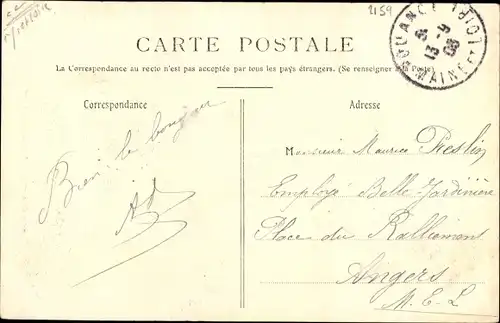 2159
CARTE POSTALE
La Correspondance au recto n'est pas acceptée par tous les pays étrangers. (Se renseigner à la Poste)
Correspondance
Adresse
Bien le bonjour
Ad
Monsieur Maurice Preslin
Employé Belle Jardinière
Place du Ralliement
Angers
M. &. L
MAINE ET LOIRE
13 - 9
08